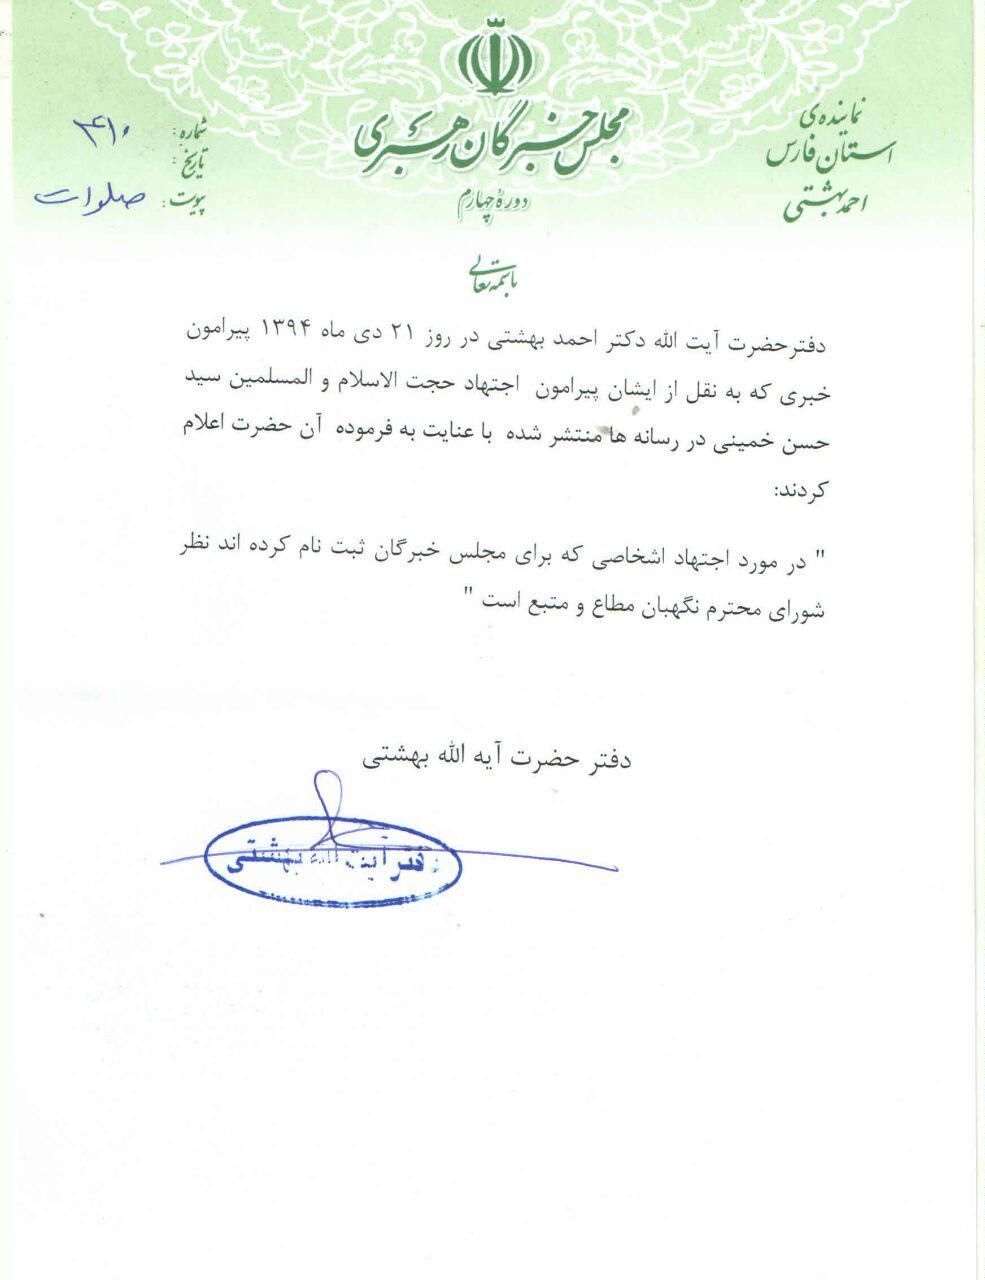 مجلس خبرگان رهبری
دورهٔ چهارم
نماینده‌ی
استان فارس
احمد بهشتی
شماره: ۳۴۱۰
تاریخ:
پیوت: صلوات
باسمه تعالی
دفترحضرت آیت الله دکتر احمد بهشتی در روز ۲۱ دی ماه ۱۳۹۴ پیرامون
خبری که به نقل از ایشان پیرامون اجتهاد حجت الاسلام و المسلمین سید
حسن خمینی در رسانه ها منتشر شده با عنایت به فرموده آن حضرت اعلام
کردند:
" در مورد اجتهاد اشخاصی که برای مجلس خبرگان ثبت نام کرده اند نظر
شورای محترم نگهبان مطاع و متبع است "
دفتر حضرت آیه الله بهشتی
دفتر آیت الله بهشتی